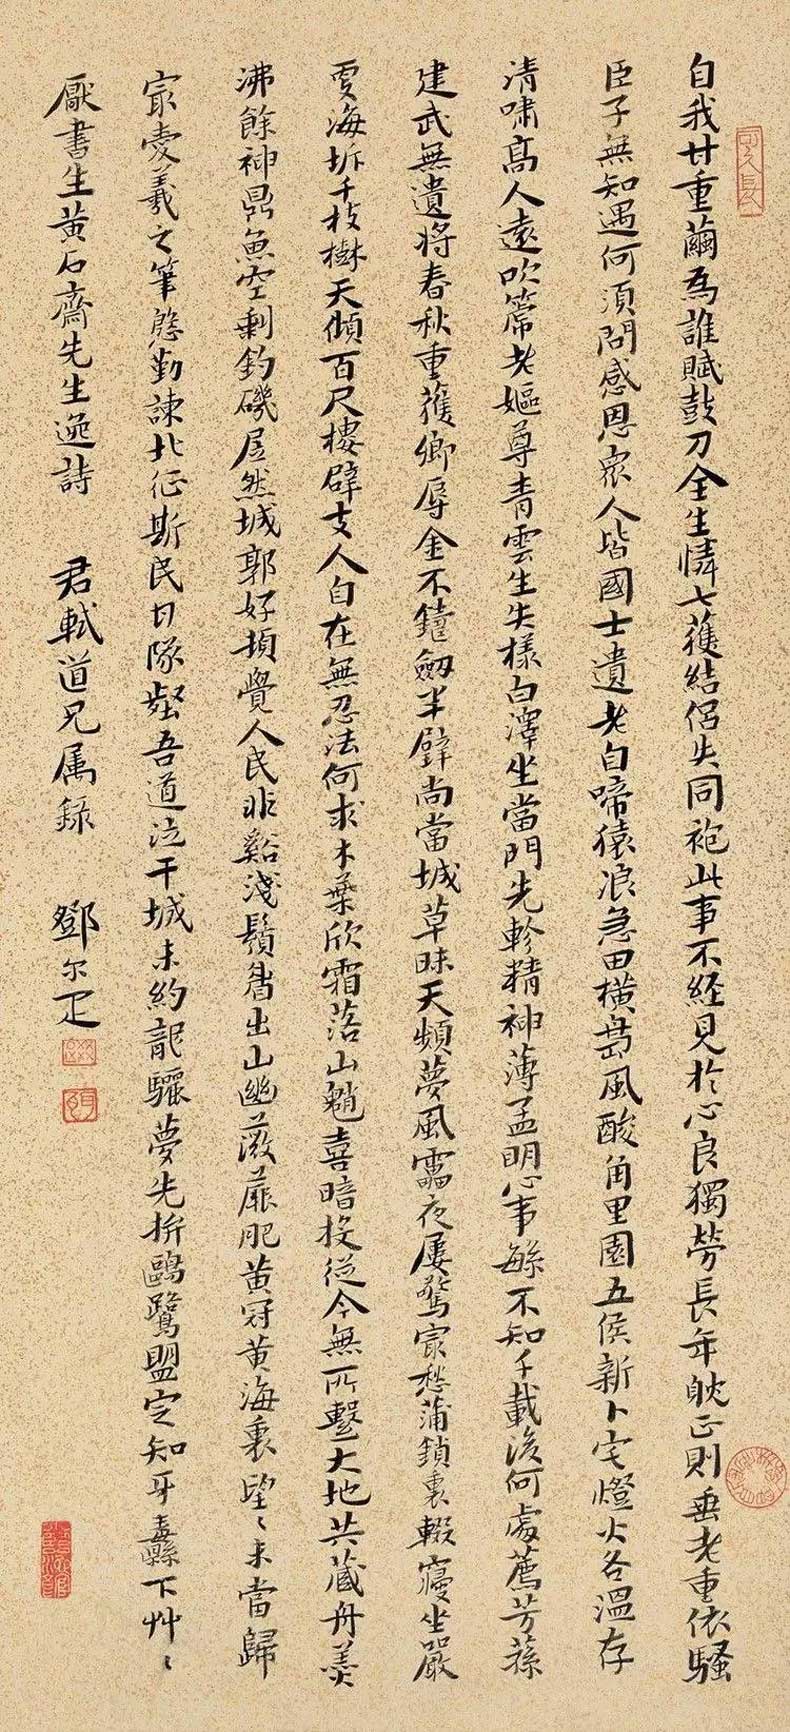 自我甘重繭為誰賦鼓刀全生憐七獲結侶失同袍此事不經見於心良獨勞長年耽正則垂老重依騷
臣子無知遇何須問感恩眾人皆國士遺老自啼猿浪急田橫島風酸角里園五侯新卜宅燈火各溫存
清嘯高人遠吹簫老嫗尊青雲生失樣白澤坐當門先軫精神薄孟明心事繇不知千載後何處薦芳蓀
建武無遺將春秋重獲卿辱金不鑄劒半壁尚當城草昧天頻夢風雷夜屢驚家愁蒲鎖裏輟寢坐嚴
更海坼千枝樹天傾百尺樓辟支人自在無忍法何求木葉欣霜落山魈喜暗投從今無所繫大地共藏舟羹
沸餘神鼎魚空剩釣磯居然城郭好頓覺人民非谿淺鬚眉出山幽薇蕨肥黃冠黃海裏望〻未當歸
最愛羲之筆慇勤諫北征斯民甘隊壑吾道泣干城未約龍驪夢先拚鷗鷺盟定知牙纛下艸〻
厭書生黃石齋先生逸詩　君軾道兄属錄　鄧尔疋